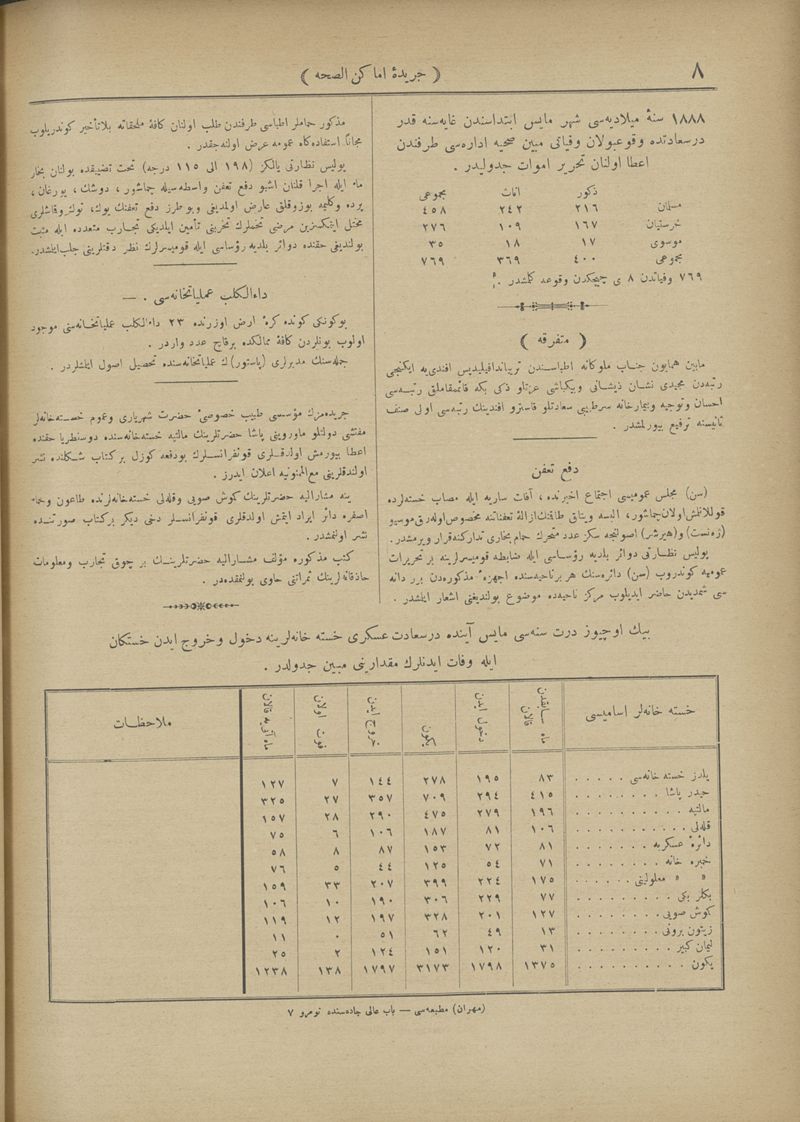 ٨
( جريدهٔ اماكن الصحه )
١٨٨٨ سنهٔ ميلاديه‌سى شهر مايس ابتداسندن غايه‌سنه قدر
درسعادتده وقوعبولان وفياتى مبين صحيه اداره‌سى طرفندن
اعطا اولنان تحرير اموات جدوليدر .
ذكور اناث مجموعى
مسلمان ٢١٦ ٢٤٢ ٤٥٨
خرستيان ١٦٧ ١٠٩ ٢٧٦
موسوى ١٧ ١٨ ٣٥
مجموعى ٤٠٠ ٣٦٩ ٧٦٩
٧٦٩ وفياتدن ٨ ى چيچكدن وقوعه كلمشدر .
( متفرقه )
مابين همايون جناب ملوكانه اطباسندن تريانداقيليديس افندى‌يه ايكنجى
رتبه‌دن مجيدى نشان ذيشانى وبيكباشى عزتلو ذكى بكه قائممقاملق رتبه‌سى
احسان وتوجيه وتيمارخانه سرطبيبى سعادتلو قاسترو افندينك رتبه‌سى اولى صنف
ثانيسنه ترفيع بيورلمشدر .
دفع تعفن
(سن) مجلس عموميسى اجتماع اخيرنده ، آفات ساريه ايله مصاب خسته‌لرده
قوللانلش اولان چماشور ، البسه ويتاق طاقنك ازالهٔ تعفناتنه مخصوص اوله‌رق موسيو
(ژه‌نست) و(هيرشر) اصولنجه سكز عدد متحرك حمام بخارى تداركنه قرار ويرمشدر .
پوليس نظارتى دوائر بلديه رؤساسى ايله ضابطه قوميسرلرينه بر تحريرات
عموميه كوندروب (سن) دائره‌سنك هر برناحيه‌سنده اجهزهٔ مذكوره‌دن برر دانه
سى شمديدن حاضر ايديلوب مركز ناحيه‌ده موضوع بولنديغنى اشعار ايلشدر .
مذكور حماملر اطباسى طرفندن طلب اولنان كافهٔ ملحقاته بلاتأخير كوندريلوب
مجاناً استفاده‌كاه عمومه عرض اولنه‌جقدر .
پوليس نظارتى يالكز (١٩٨ الى ١١٥ درجه) تحت تضييقده بولنان بخار
ماء ايله اجرا قلنان اشبو دفع تعفن واسطه‌سيله چماشور ، دوشك ، يورغان ،
پرده وكليمه بوزوقلق عارض اولمديغى وبو طرز دفع تعفنك يوك، توك وقاشلرى
مختل ايتمكسزين مرضى تخملرك تخربنى تأمين ايلديكى تجارب متعدده ايله مثبت
بولنديغى حقنده دوائر بلديه رؤساسى ايله قوميسرلرك نظر دقتلرينى جلب ايلشدر.
داءالكلب عملياتخانه‌سى . —
بوكونكى كونده كرهٔ ارض اوزرنده ٢٣ داءالكلب عملياتخانه‌سى موجود
اولوب بونلردن كافهٔ ممالكده برقاچ عدد واردر .
جمله‌سنك مديرلرى (پاستور)ك عملياتخانه‌سنده تحصيل اصول ايلشلردر .
جريده‌مزك مؤسسى طبيب خصوصئ حضرت شهريارى وعموم خسته‌خانه‌لر
مفتشى دولتلو ماورويى پاشا حضرتلرينك مالتپه خسته‌خانه‌سنده دوسنطريا حقنده
اعطا بيورمش اولدقلرى قونفرانسلرك بودفعه كوزل بر كتاب شكلنده نشر
اولندقلرينى مع‌الممنونيه اعلان ايدرز .
ينه مشاراليه حضرتلرينك كوش صويى وقله‌لى خسته‌خانه‌لرنده طاعون وحماء
اصفره دائر ايراد ايتمش اولدقلرى قونفرانسلر دخى ديكر بركتاب صورتنده
نشر اولنمشدر .
كتب مذكوره مؤلف مشاراليه حضرتلرينك بر چوق تجارب ومعلومات
حاذقانه‌لرينك ثمراتنى حاوى بولنمقده‌در .
بيك اوچيوز درت سنه‌سى مايس آينده درسعادت عسكرى خسته خانه‌لرينه دخول وخروج ايدن خستكان
ايله وفات ايدنلرك مقدارينى مبين جدولدر .
خسته خانه‌لر اساميسى ماه سابقدن قالان دخول ايدن يكون خروج ايدن فوت اولان ماه آتى‌يه قالان ملاحظات
يلدز خسته خانه‌سى . . . . . ٨٣ ١٩٥ ٢٧٨ ١٤٤ ٧ ١٢٧
حيدر پاشا . . . . . . . . ٤١٥ ٢٩٤ ٧٠٩ ٣٥٧ ٢٧ ٣٢٥
مالتپه . . . . . . . . . . ١٩٦ ٢٧٩ ٤٧٥ ٢٩٠ ٢٨ ١٥٧
قله‌لى . . . . . . . . . . ١٠٦ ٨١ ١٨٧ ١٠٦ ٦ ٧٥
دائرهٔ عسكريه . . . . . . . ٨١ ٧٢ ١٥٣ ٨٧ ٨ ٥٨
خمبره خانه . . . . . . . . ٧١ ٥٤ ١٢٥ ٤٤ ٥ ٧٦
« « معلولينى . . . . . . ١٧٥ ٢٢٤ ٣٩٩ ٢٠٧ ٣٣ ١٥٩
بكلر بكى . . . . . . . . . ٧٧ ٢٢٩ ٣٠٦ ١٩٠ ١٠ ١٠٦
كوش صويى . . . . . . . . ١٢٧ ٢٠١ ٣٢٨ ١٩٧ ١٢ ١١٩
زيتون برونى . . . . . . . ١٣ ٤٩ ٦٢ ٥١ ٠ ١١
ليمان كبير . . . . . . . . ٣١ ١٢٠ ١٥١ ١٢٤ ٢ ٢٥
يكون . . . . . . . . . . ١٣٧٥ ١٧٩٨ ٣١٧٣ ١٧٩٧ ١٣٨ ١٢٣٨
(مهران) مطبعه‌سى — باب عالى جاده‌سنده نومرو ٧